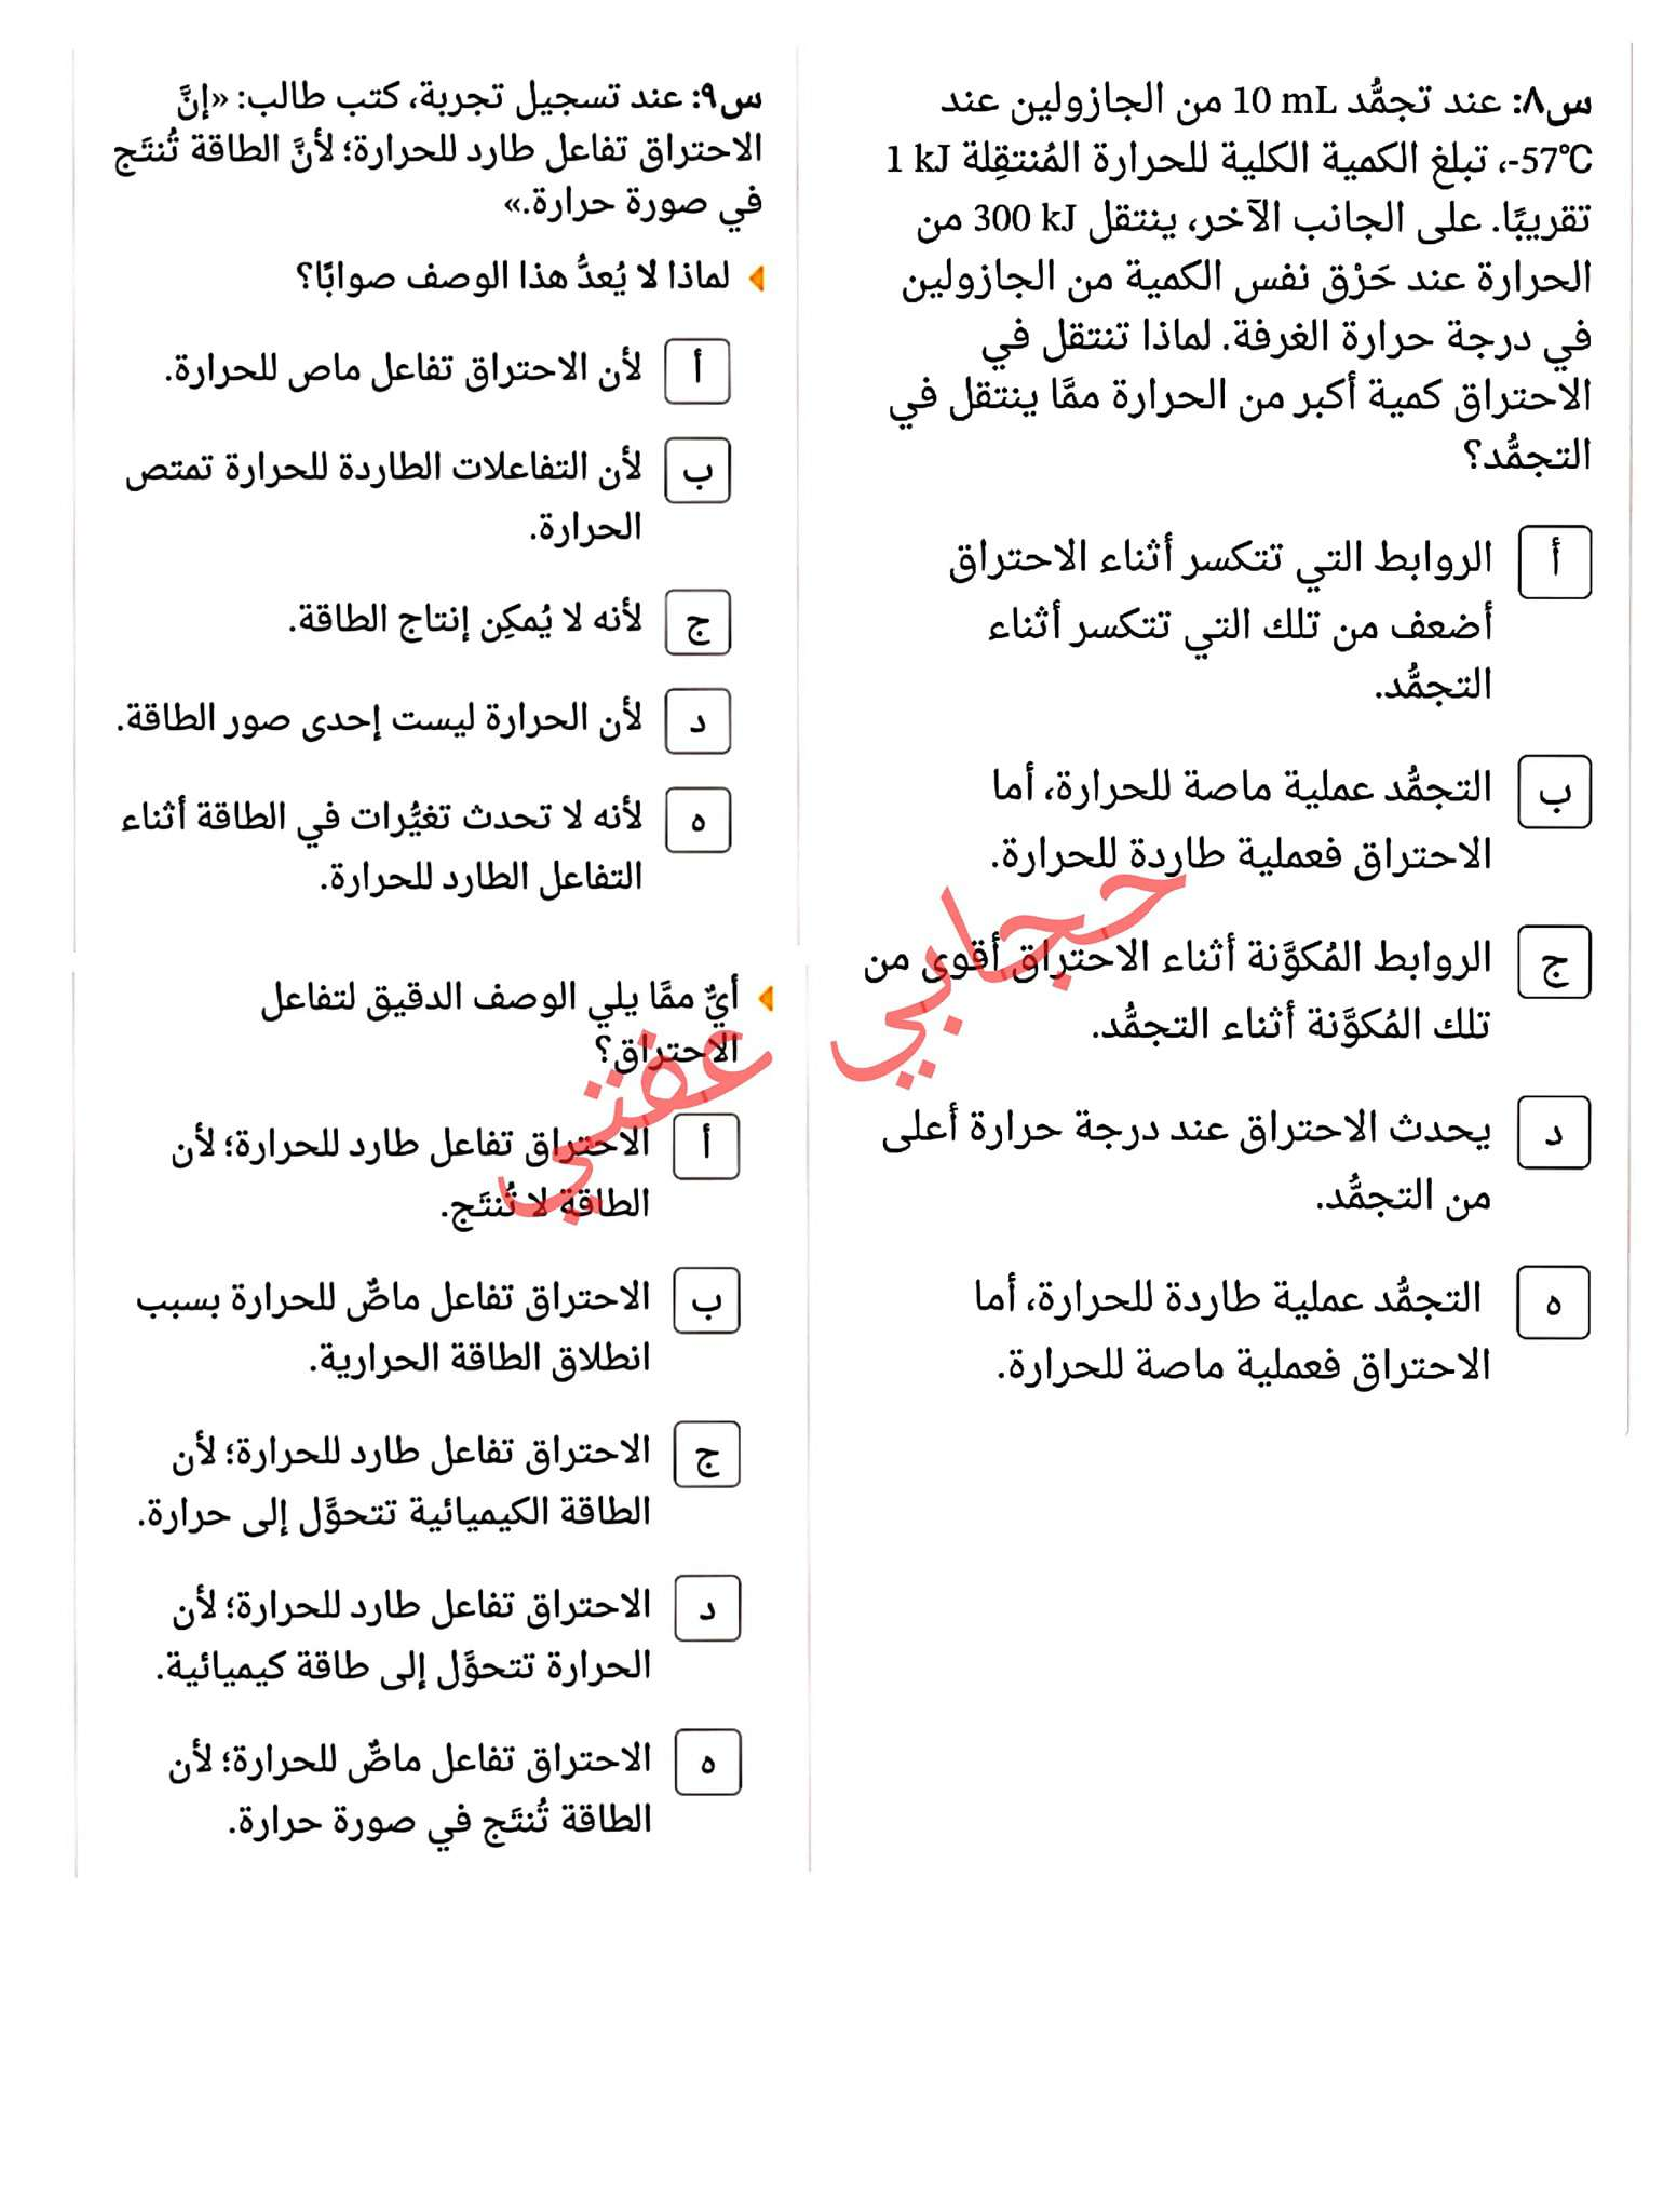 س٨: عند تجمُّد 10 mL من الجازولين عند
-57°C، تبلغ الكمية الكلية للحرارة المُنتقِلة 1 kJ
تقريبًا. على الجانب الآخر، ينتقل 300 kJ من
الحرارة عند حَرْق نفس الكمية من الجازولين
في درجة حرارة الغرفة. لماذا تنتقل في
الاحتراق كمية أكبر من الحرارة ممَّا ينتقل في
التجمُّد؟
أ الروابط التي تتكسر أثناء الاحتراق
أضعف من تلك التي تتكسر أثناء
التجمُّد.
ب التجمُّد عملية ماصة للحرارة، أما
الاحتراق فعملية طاردة للحرارة.
ج الروابط المُكوَّنة أثناء الاحتراق أقوى من
تلك المُكوَّنة أثناء التجمُّد.
د يحدث الاحتراق عند درجة حرارة أعلى
من التجمُّد.
ه التجمُّد عملية طاردة للحرارة، أما
الاحتراق فعملية ماصة للحرارة.
س٩: عند تسجيل تجربة، كتب طالب: «إنَّ
الاحتراق تفاعل طارد للحرارة؛ لأنَّ الطاقة تُنتَج
في صورة حرارة.»
لماذا لا يُعدُّ هذا الوصف صوابًا؟
أ لأن الاحتراق تفاعل ماص للحرارة.
ب لأن التفاعلات الطاردة للحرارة تمتص
الحرارة.
ج لأنه لا يُمكِن إنتاج الطاقة.
د لأن الحرارة ليست إحدى صور الطاقة.
ه لأنه لا تحدث تغيُّرات في الطاقة أثناء
التفاعل الطارد للحرارة.
أيٌّ ممَّا يلي الوصف الدقيق لتفاعل
الاحتراق؟
أ الاحتراق تفاعل طارد للحرارة؛ لأن
الطاقة لا تُنتَج.
ب الاحتراق تفاعل ماصٌّ للحرارة بسبب
انطلاق الطاقة الحرارية.
ج الاحتراق تفاعل طارد للحرارة؛ لأن
الطاقة الكيميائية تتحوَّل إلى حرارة.
د الاحتراق تفاعل طارد للحرارة؛ لأن
الحرارة تتحوَّل إلى طاقة كيميائية.
ه الاحتراق تفاعل ماصٌّ للحرارة؛ لأن
الطاقة تُنتَج في صورة حرارة.
حجابي عفتي